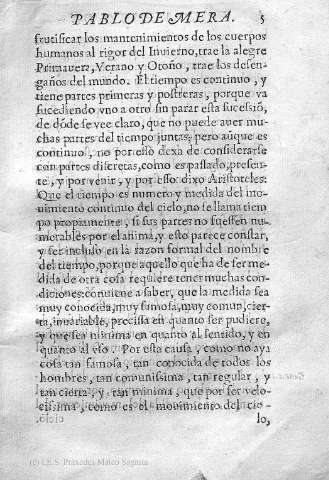 PABLO DE MERA. 5
frutificar los mantenimientos de los cuerpos
humanos al rigor del Inuierno, trae la alegre
Primauera, Verano y Otoño, trae los desen-
gaños del mundo. El tiempo es continuo, y
tiene partes primeras y postreras, porque va
sucediendo vno a otro sin parar esta sucessió,
de dóde se vee claro, que no puede auer mu-
chas partes del tiempo juntas, pero aúque es
continuo, no por esso dexa de considerarse
con partes discretas, como es passado, presen-
te, y por venir, y por esso dixo Aristoteles:
Que el tiempo es numero y medida del mo-
uimiento continuo del cielo, no se llama tiem
po propiamente, si sus partes no fuessen nu-
merables por el anima, y esto parece constar,
y ser incluso en la razon formal del nombre
del tiempo, porque aquello que ha de ser me-
dida de otra cosa requiere tener muchas con-
diciones: conuiene a saber, que la medida sea
muy conocida, muy famosa, muy comun, cier-
ta, inuariable, precissa en quanto ser pudiere,
y que sea minima en quanto al sentido, y en
quanto al vso. Por esta causa, como no aya
cosa tan famosa, tan conocida de todos los
hombres, tan comunissima, tan regular, y
tan cierta, y tan minima, que por ser velo-
cissima, como es el mouimiento del cie-
lo,
(c) I.E.S. Práxedes Mateo Sagasta